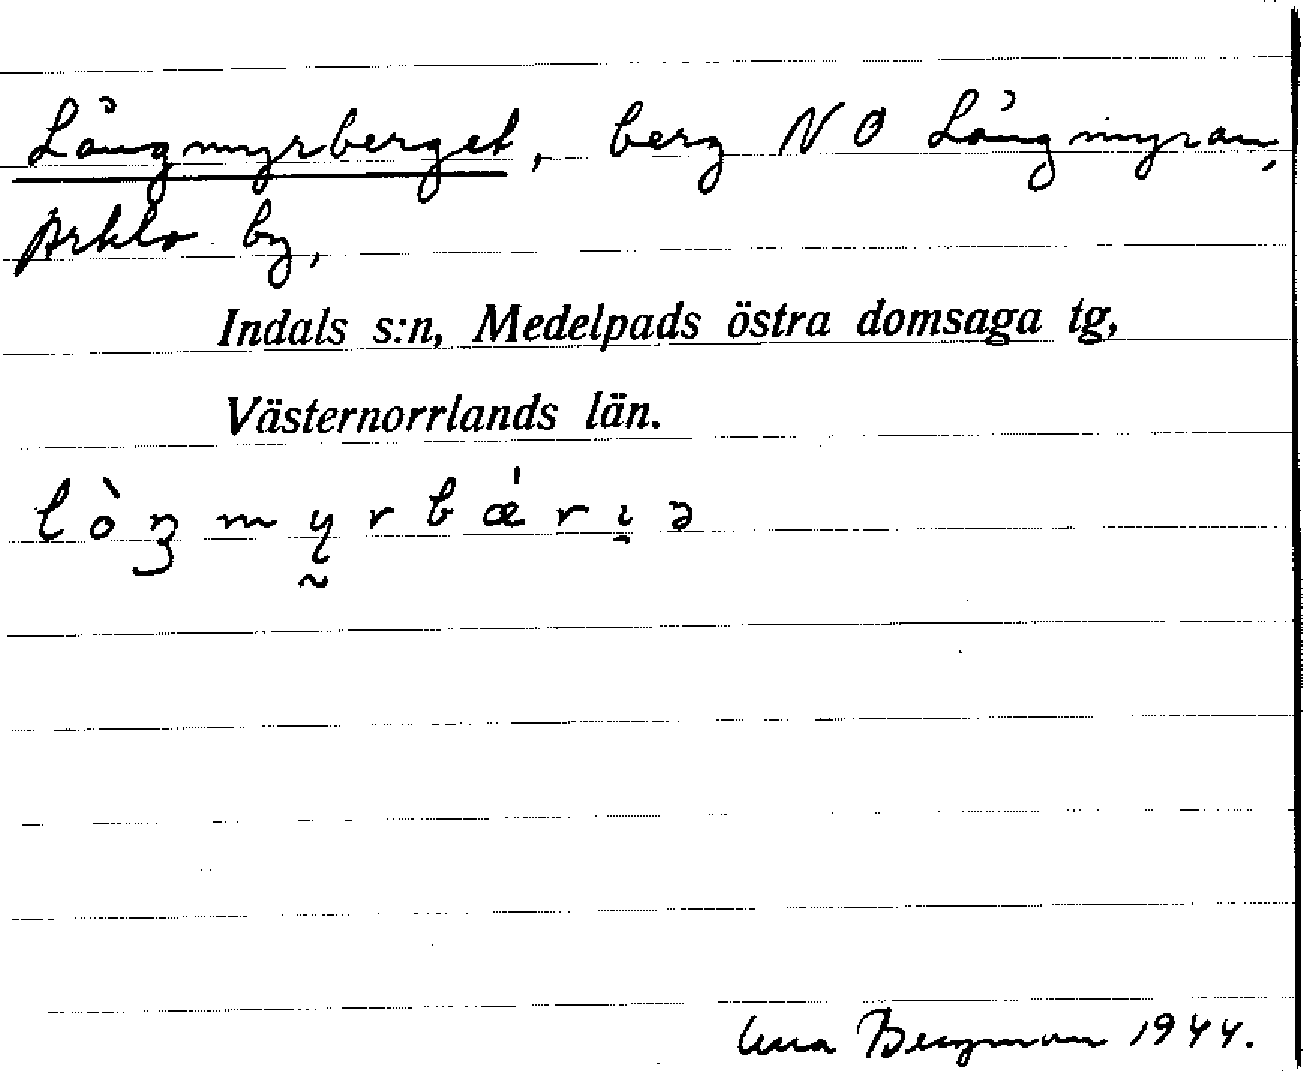 Långmyrberget, berg NO Långmyran,
Arklo by,
Indals s:n, Medelpads östra domsaga tg,
Västernorrlands län.
lòŋmy̰rbǽri̯ə
Bergman 1944.